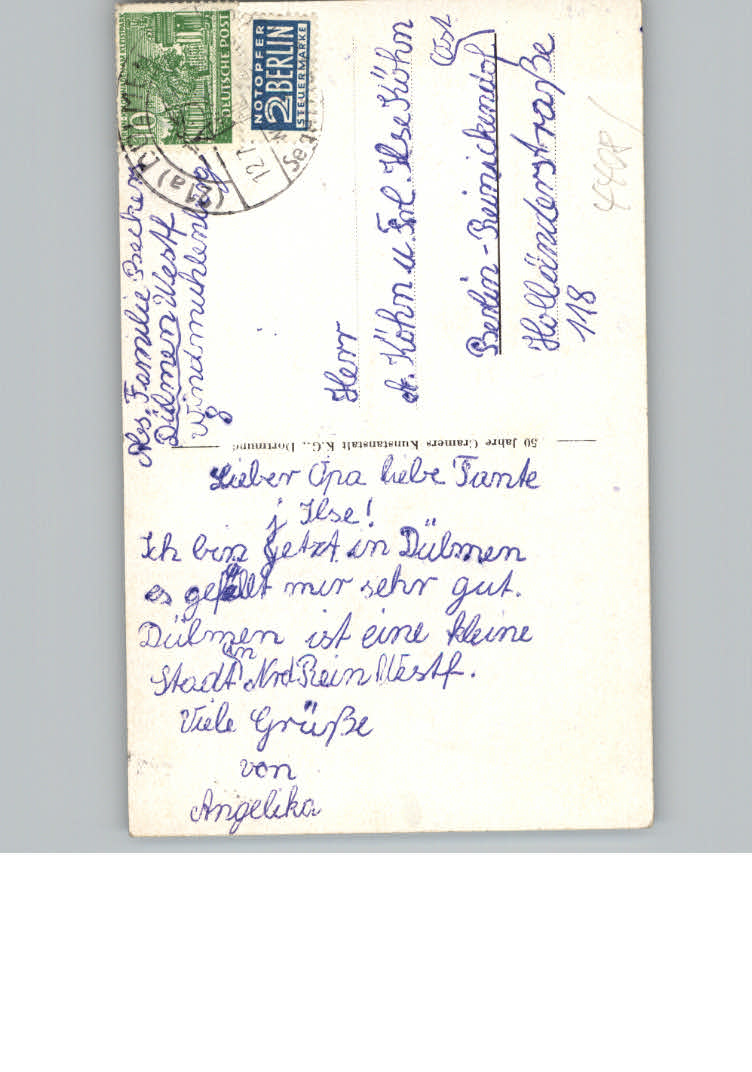 Lieber Opa liebe Tante
Ilse!
Ich bin jetzt in Dülmen
es gefällt mir sehr gut.
Dülmen ist eine kleine
Stadt in Nrd Rein Westf.
Viele Grüße
von
Angelika
Abs. Familie
Dülmen Westf
Windmühlenberg
8
Herr
A. Köhn u. Frl. Ilse Köhn
Berlin-Reinickendorf
Ost
Holländerstraße
118
4408
50 Jahre Cramers Kunstanstalt K.G., Dortmund
10
DEUTSCHE POST
NOTOPFER
2 BERLIN
STEUERMARKE
(21a)
12.7